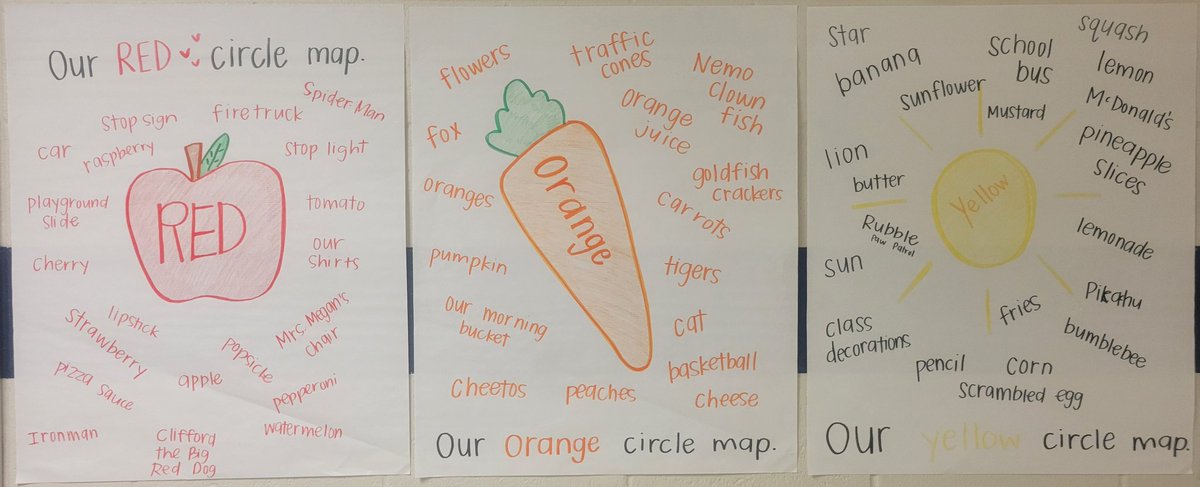 Our RED circle map.
Spider Man
fire truck
Stop sign
car
raspberry
Stop light
playground
Slide
RED
tomato
our
Shirts
cherry
lipstick
Strawberry
Mrs. Megan's
chair
popsicle
pizza sauce
apple
pepperoni
Ironman
watermelon
Clifford
the Big
Red Dog
flowers
traffic
cones
Nemo
clown
fish
fox
orange
juice
Orange
oranges
goldfish
crackers
carrots
pumpkin
tigers
our morning
bucket
cat
basketball
Cheetos
peaches
cheese
Our Orange circle map.
Star
squash
banana
School
bus
lemon
sunflower
Mustard
McDonald's
pineapple
slices
lion
butter
Yellow
Rubble
Paw Patrol
lemonade
sun
Pikahu
fries
class
decorations
bumblebee
pencil
corn
scrambled egg
Our yellow circle map.